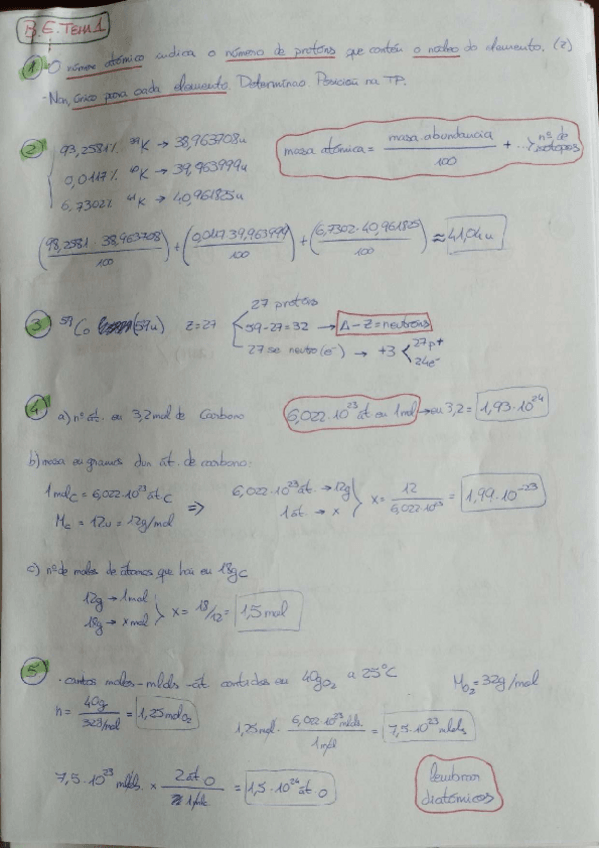 B.E. Tema 1
① O número atómico indica o número de protóns que contén o núcleo do elemento. (Z)
- Non, único para cada elemento. Determina a Posición na TP.
② 93,2581% ³⁹K → 38,963708u
0,0117% ⁴⁰K → 39,963999u
6,7302% ⁴¹K → 40,961825u
masa atómica = masa·abundancia / 100 + ... nº de isótopos
(98,2581 · 38,963708 / 100) + (0,0117·39,963999 / 100) + (6,7302·40,961825 / 100) ≈ 41,04u
③ ⁵⁹Co (59u) Z=27
27 protóns
59-27=32 → A-Z=neutróns
27 se neutro (e⁻) → +3 27p+ 24e⁻
④ a) nº át. en 3,2 mol de Carbono 6,022·10²³ át en 1 mol → en 3,2 = 1,93·10²⁴
b) masa en gramos dun át. de carbono:
1 mol C = 6,022·10²³ át C ⇒ 6,022·10²³ át. → 12g
Mc = 12u = 12g/mol 1 át. → x
x = 12 / 6,022·10²³ = 1,99·10⁻²³
c) nº de moles de átomos que hai en 18g C
12g → 1mol
18g → x mol
x = 18/12 = 1,5 mol
⑤ · cantos moles - mlcls - át contidos en 40g O₂ a 25°C M O₂ = 32g/mol
n = 40g / 32g/mol = 1,25 mol O₂
1,25 mol · 6,022·10²³ mlcls / 1 mol = 7,5·10²³ mlcls
7,5·10²³ mlcls × 2 át O / 1 mlc = 1,5·10²⁴ át O
lembrar
diatómicos